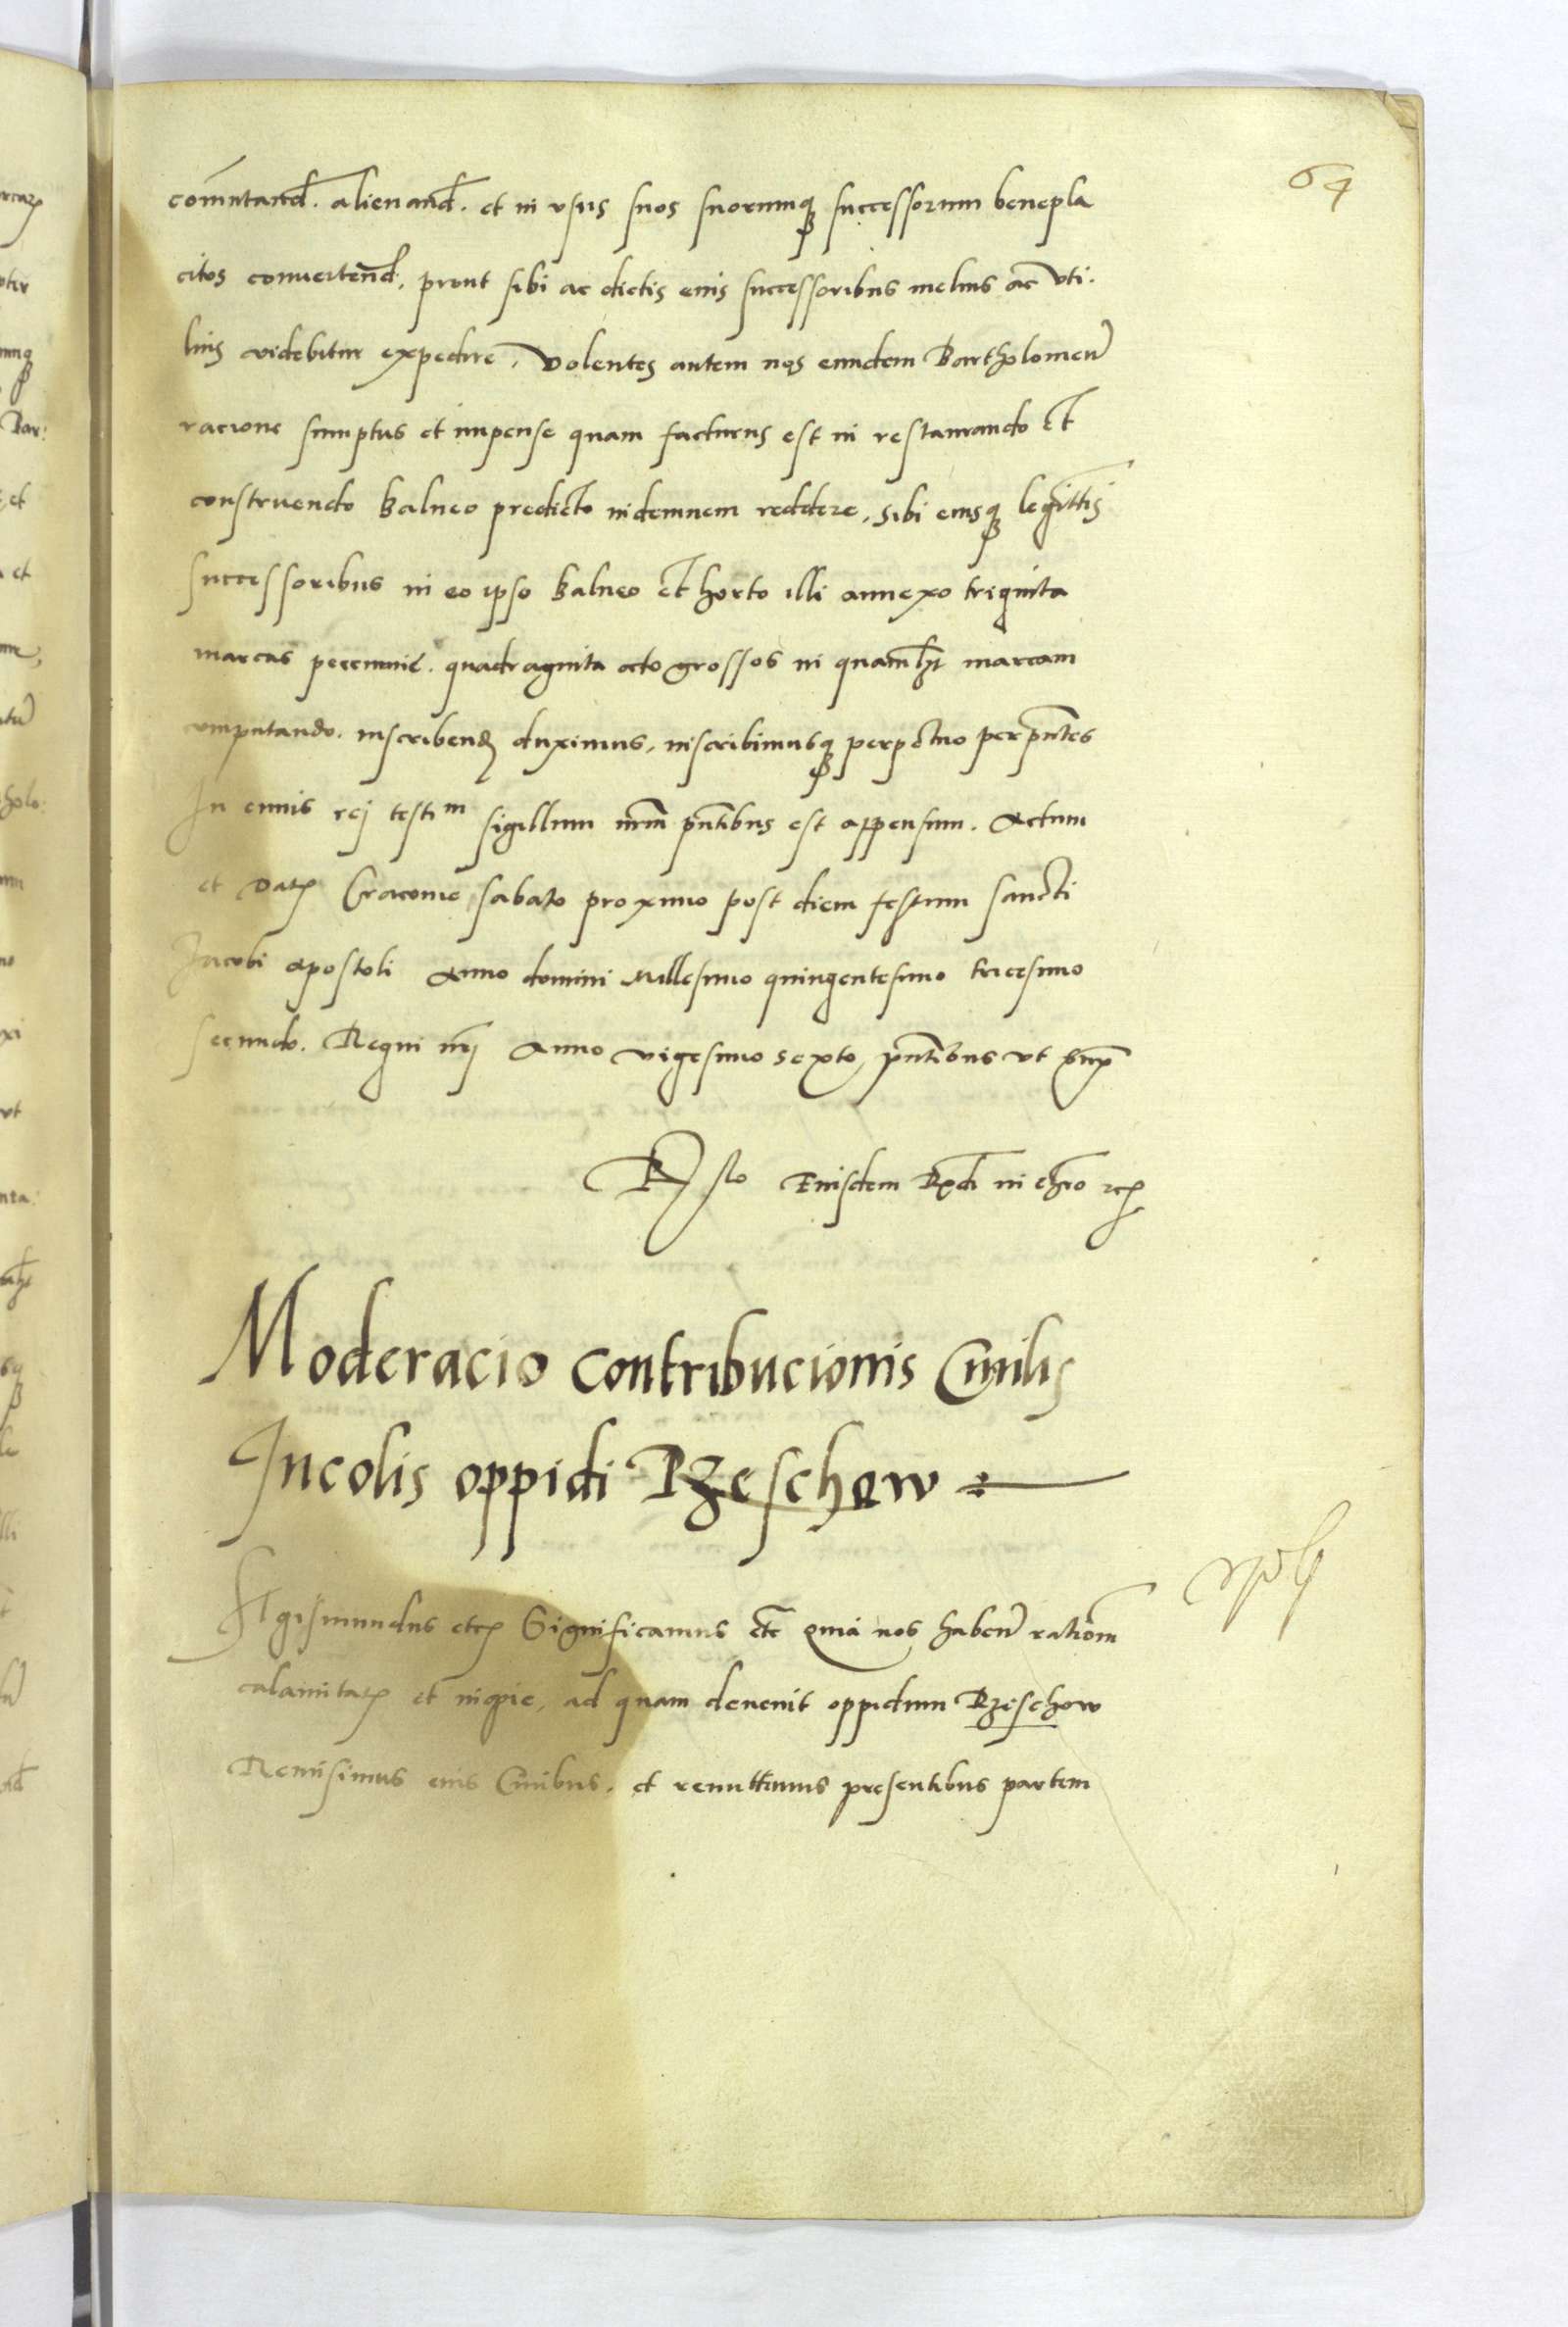 64
com̄utand. alienand. et in vsus suos suorumq̨ successorum benepla
citos conuertend, prout sibi ac dictis eius successoribus melius ac vti.
lius videbitur expedire. Volentes autem nos eundem Bartholomeu
racione sumptus et impense quam facturus est in restaurando et
construendo balneo predicto indemnem reddere, sibi eiusq̨ legittis
successoribus in eo ipso balneo et horto illi annexo triginta
marcas pecunie. quadraginta octo grossos in quamlzt marcam
computando. inscribend duximus, inscribimusq̨ perpetuo per pn̄tes
In cuius rej testim sigillum nrm̄ pn̄tibus est appensum. Actum
et Datz Cracouie sabato proximo post diem festum sancti
Jacobi apostoli Anno domini Millesimo quingentesimo tricesimo
secundo. Regni nrj Anno vigesimo sexto, pn̄tibus vt supra
Rlo Eiusdem Rdi in chro etc
Moderacio contribucionis Ciuilis
Incolis oppidi Rzeschow
Sigismundus etc Significamus etc Quia nos haben rationem
calamitatz et inopie, ad quam deuenit oppidum Rzeschow
Remisimus eius Ciuibus, et remittimus presentibus partem